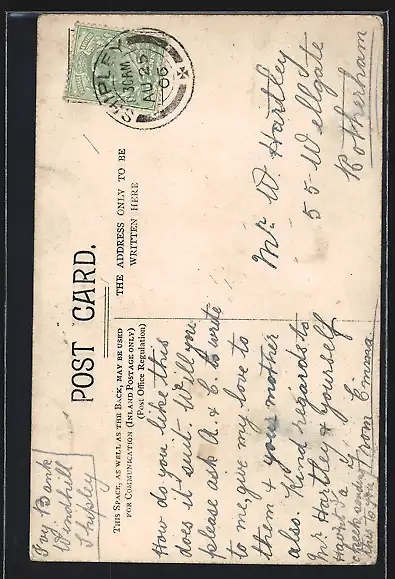 Ivy Bank
Windhill
Shipley
POST CARD.
THIS SPACE, AS WELL AS THE BACK, MAY BE USED
FOR COMMUNICATION (INLAND POSTAGE ONLY)
(Post Office Regulation)
THE ADDRESS ONLY TO BE
WRITTEN HERE
SHIPLEY
30 AM
AU 25
06
How do you like this
does it suit. Will you
please ask A. & E. to write
to me, give my love to
them & your mother
also kind regards to
Mr Hartley & yourself
from Emma
cheek sending
this to you
Mr. W. Hartley
55 Wellgate
Rotherham